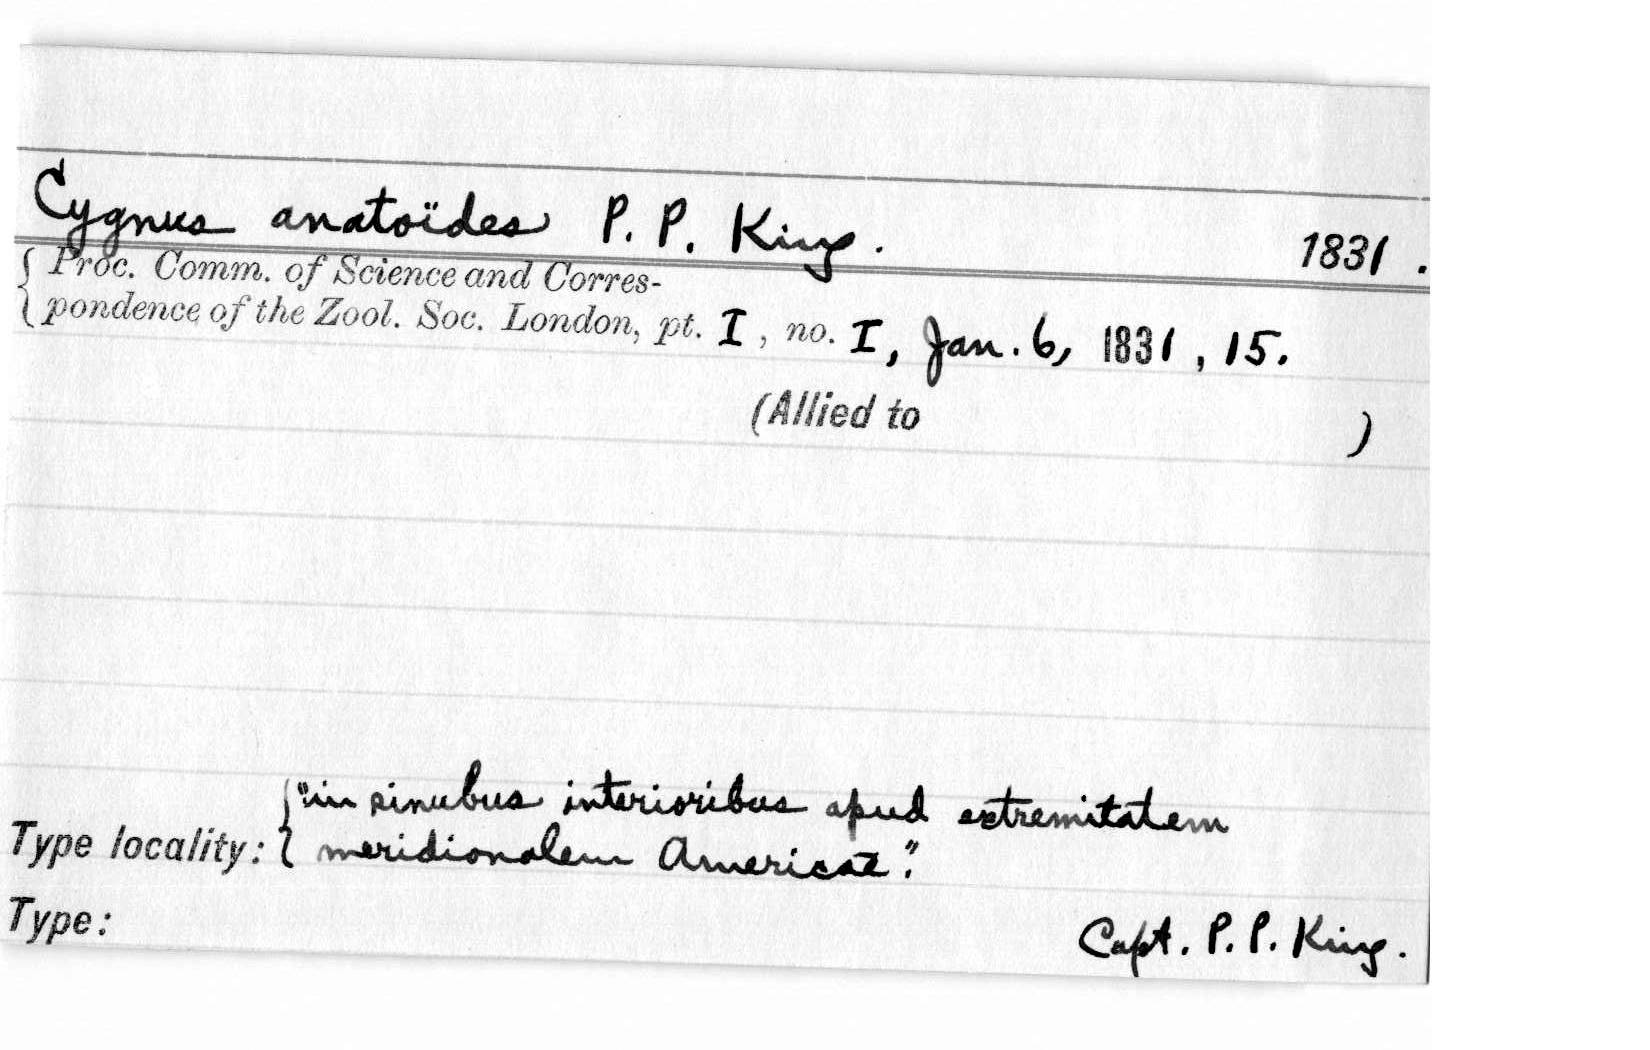 Cygnus anatoïdes P. P. King. 1831.
Proc. Comm. of Science and Corres-
pondence of the Zool. Soc. London, pt. I, no. I, Jan. 6, 1831, 15.
(Allied to )
"in sinubus interioribus apud extremitatem
Type locality: meridionalem Americae".
Type: Capt. P. P. King.